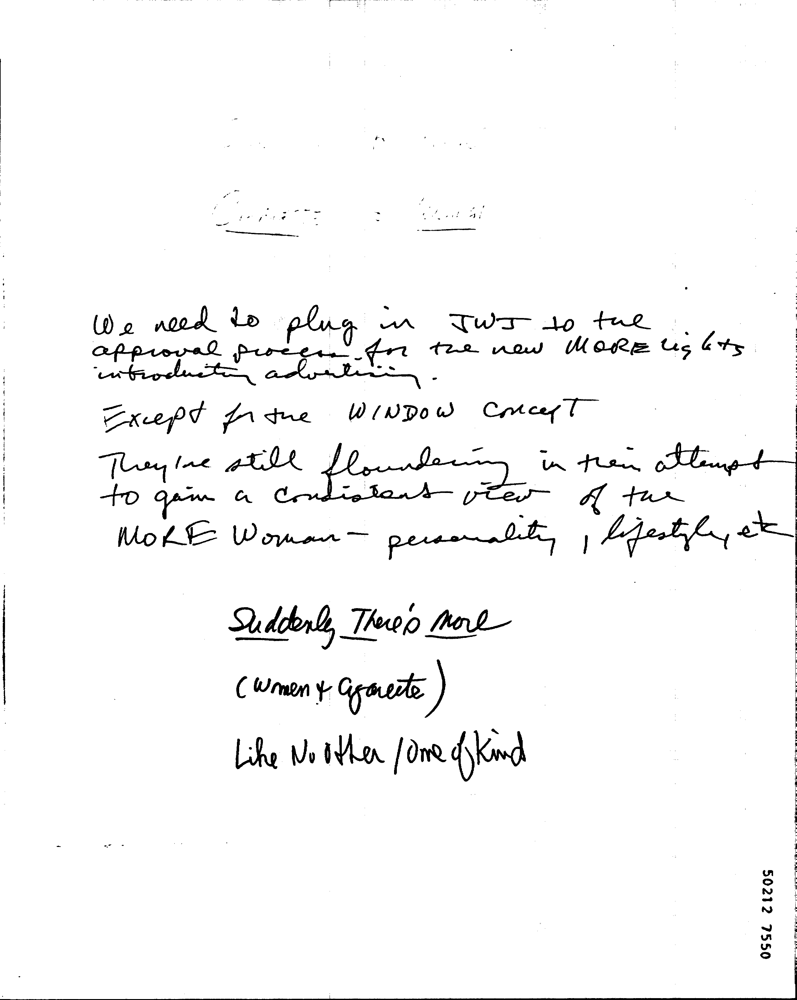 We need to plug in JWJ to the
approval process for the new MORE Lights
introductory advertising.
Except for the WINDOW Concept
They're still floundering in their attempt
to gain a consistent view of the
MORE Woman - personality, lifestyle, etc
Suddenly There's More
(Women & Cigarette)
Like No Other / One of Kind
50212 7550